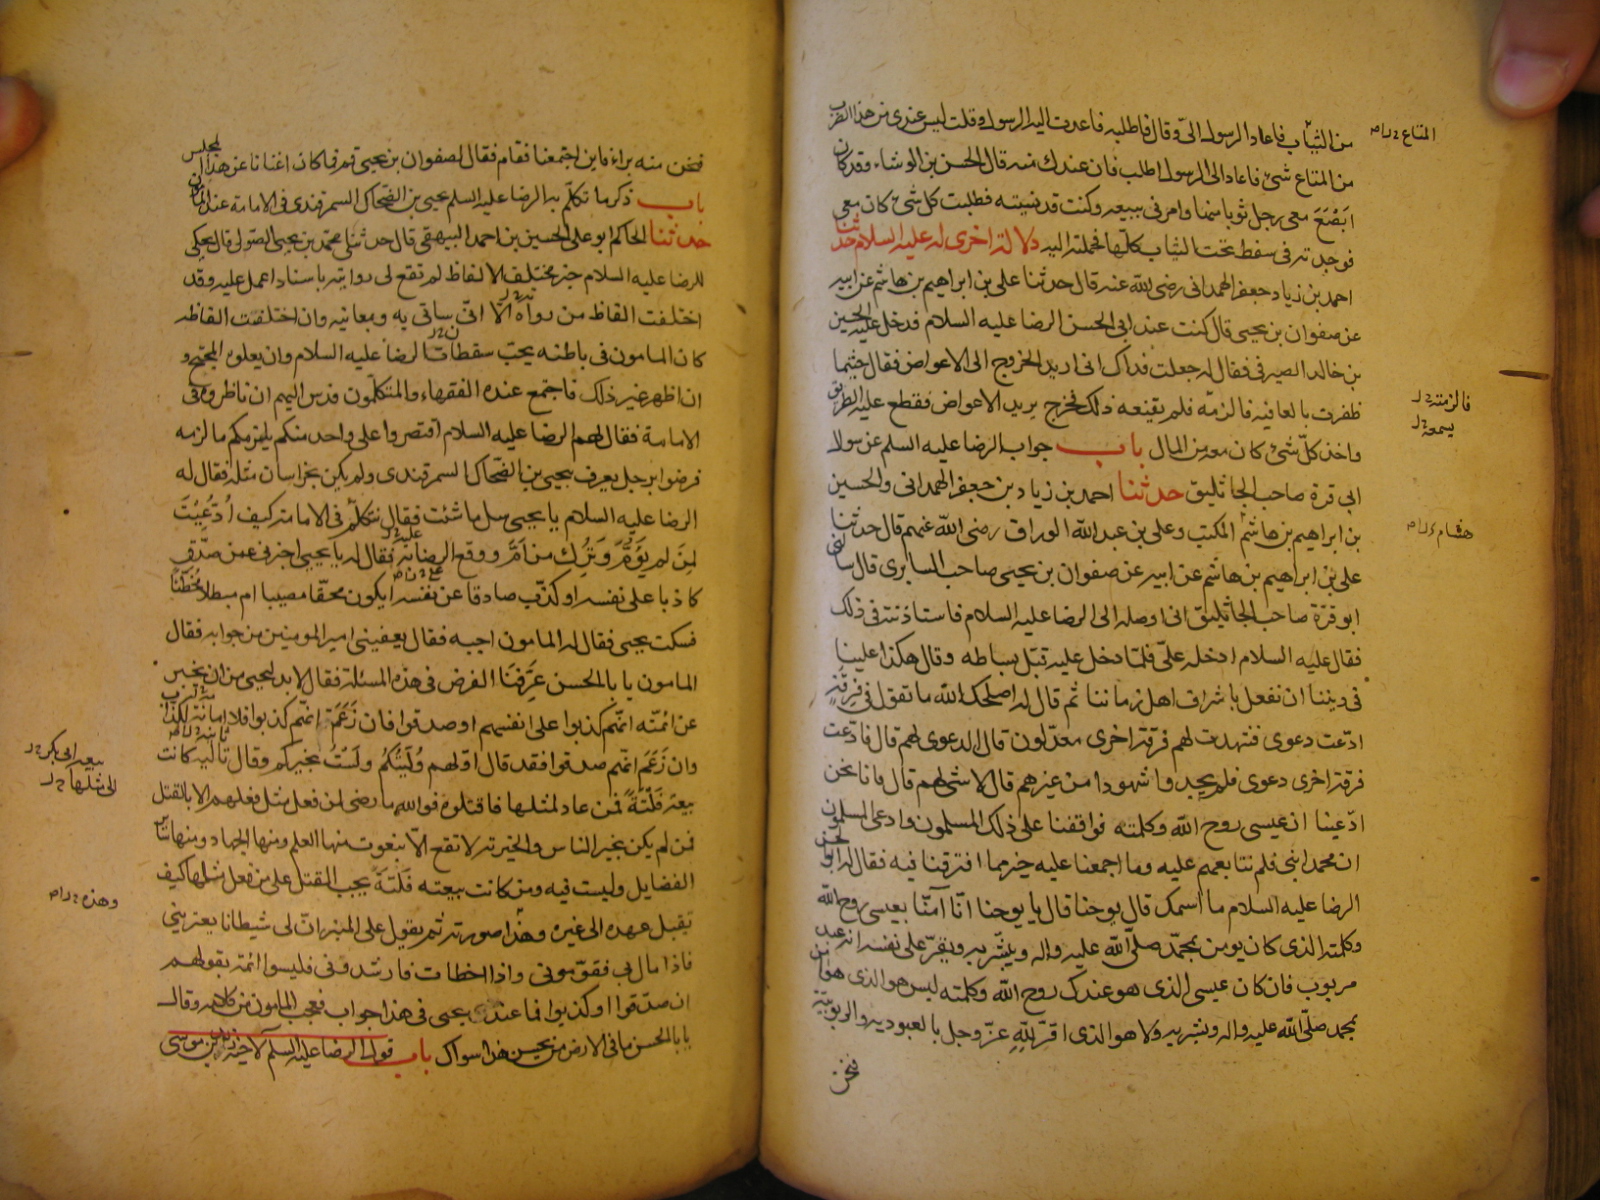 من الثياب فاعاد الرسول الىّ وقال فاطلبه فاعدت اليه الرسول وقلت ليس عندى من هذا الضرب
المتاع
من المتاع شئ فاعاد الى الرسول اطلب فان عندك منه قال الحسن بن الوشاء وقد كان
ابضع معى رجل ثوبا منها وامرنى ببيعه وكنت قد نسيته فطلبت كل شئ كان معى
فوجدته فى سفط تحت الثياب كلّها فحملته اليه دلالة اخرى له عليه السلام حدثنا
احمد بن زياد جعفر الهمدانى رضى الله عنه قال حدثنا على بن ابراهيم بن هاشم عن ابيه
عن صفوان بن يحيى قال كنت عند ابى الحسن الرضا عليه السلام فدخل عليه الحسين
بن خالد الصيرفى فقال له جعلت فداك انى اريد الخروج الى الاعواض فقال حيثما
ظفرت بالعافيه فالزمه فلم يقنعه ذلك فخرج يريد الاعواض فقطع عليه الطريق
فالزمته
يسمعه
واخذ كلّ شئ كان معه من المال باب جواب الرضا عليه السلم عن سوال
ابى قرة صاحب الجاثليق حدثنا احمد بن زياد بن جعفر الهمدانى والحسين
بن ابراهيم بن هاشم المكتب وعلى بن عبد الله الوراق رضى الله عنهم قال حدثنا
هشام
على بن ابراهيم بن هاشم عن ابيه عن صفوان بن يحيى صاحب السابرى قال سالنى
ابو قرّة صاحب الجاثليق انى اوصله الى الرضا عليه السلام فاستاذنته فى ذلك
فقال عليه السلام ادخله علىّ فلمّا دخل عليه قبّل بساطه وقال هكذا علينا
فى ديننا ان نفعل باشراف اهل زماننا ثم قال له اصلحك الله ما تقول فى فرقة
ادّعت دعوى فشهدت لهم فرقة اخرى معدّلون قال الدعوى لهم قال فادّعت
فرقة اخرى دعوى فلم يجدوا شهودا من غيرهم قال لا شئ لهم قال فانا نحن
ادّعينا ان عيسى روح الله وكلمته فوافقنا على ذلك المسلمون وادعى المسلمون
ان محمدا نبى فلم نتابعهم عليه وما اجمعنا عليه خير مما افترقنا فيه فقال له ابو الحسن
الرضا عليه السلام ما اسمك قال يوحنا قال يا يوحنا انّا آمنّا بعيسى روح الله
وكلمته الذى كان يومن بمحمّد صلّى الله عليه واله ويبشّر به ويقرّ على نفسه انه عبد
مربوب فان كان عيسى الذى هو عندك روح الله وكلمته ليس هو الذى هو امن
بمحمد صلّى الله عليه واله وبشر به ولا هو الذى اقرّ لله عزّ وجل بالعبوديه والربوبيّة
فنحن
فنحن منه براء فاين اجتمعنا فقام فقال لصفوان بن يحيى قم فما كان اغنانا عن هذا المجلس
باب ذكر ما تكلّم به الرضا عليه السلم يحيى بن الضحاك السمرقندى فى الامامة عند المامون
حدثنا الحاكم ابو على الحسين بن احمد البيهقى قال حدثنى محمد بن يحيى الصولى قال يحكى
للرضا عليه السلام خبر مختلف الالفاظ لم تقع لى روايته باسناد اعمل عليه وقد
اختلفت الفاظ من رواه الا انى ساتى به وبمعانيه وان اختلفت الفاظه
كان المامون فى باطنه يحبّ سقطات الرضا عليه السلام وان يعلوه المحتج و
ان اظهر غير ذلك فاجتمع عنده الفقهاء والمتكلّمون فدس اليهم ان ناظروه فى
الامامة فقال لهم الرضا عليه السلام اقتصروا على واحد منكم يلزمكم ما لزمه
فرضوا برجل يعرف بيحيى بن الضّحاك السمرقندى ولم يكن بخراسان مثله فقال له
الرضا عليه السلام يا يحيى سل ما شئت فقال نتكلّم فى الامامة كيف ادّعيت
لمن لم يؤمّ وتركت من امّ ووقع الرضا به فقال له يا يحيى اخبرنى عمن صدّق
كاذبا على نفسه او كذّب صادقا عن نفسه ايكون محقّا مصيبا ام مبطلا مخطئا
فسكت يحيى فقال له المامون اجبه فقال يعفينى امير المومنين من جوابه فقال
المامون يا با الحسن عرّفنا الغرض فى هذه المسئلة فقال لا بد ليحيى من ان يخبر
عن ائمّته انّهم كذبوا على انفسهم او صدقوا فان زعم انّهم كذبوا فلا امانة لكذّاب
وان زعم انّهم صدقوا فقد قال اوّلهم وليتكم ولست بخيركم وقال تاليه كانت
بيعه ابى بكر
الى مثلها
بيعته فلتة فمن عاد لمثلها فاقتلوه فوالله ما رضى لمن فعل مثل فعلهم الا بالقتل
فمن لم يكن بخير الناس والخيرية لا تقع الاّ بنعوت منها العلم ومنها الجهاد ومنها ساير
الفضايل وليست فيه ومن كانت بيعته فلتة يجب القتل على من فعل مثلها كيف
وهذه
تقبل عهده الى غيره وهذا صورته ثم يقول على المنبر انّ لى شيطانا يعترينى
فاذا مال بى فقوّمونى واذا اخطات فارشدونى فليسوا ائمة بقولهم
ان صدّقوا او كذبوا فما عند يحيى فى هذا جواب فعجب المامون من كلامه وقال
يا با الحسن ما فى الارض من يحسن هذا سواك باب قول الرضا عليه السلم لاخيه زيد بن موسى